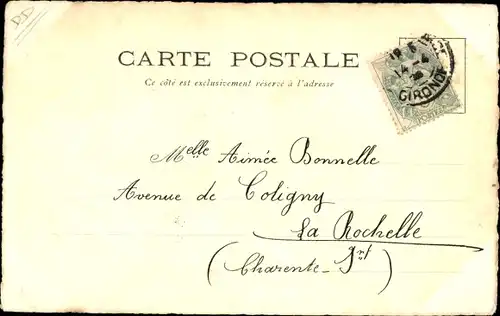 CARTE POSTALE
Ce côté est exclusivement réservé à l'adresse
14 - 4
GIRONDE
Melle Aimée Bonnelle
Avenue de Coligny
La Rochelle
(Charente-Inf)